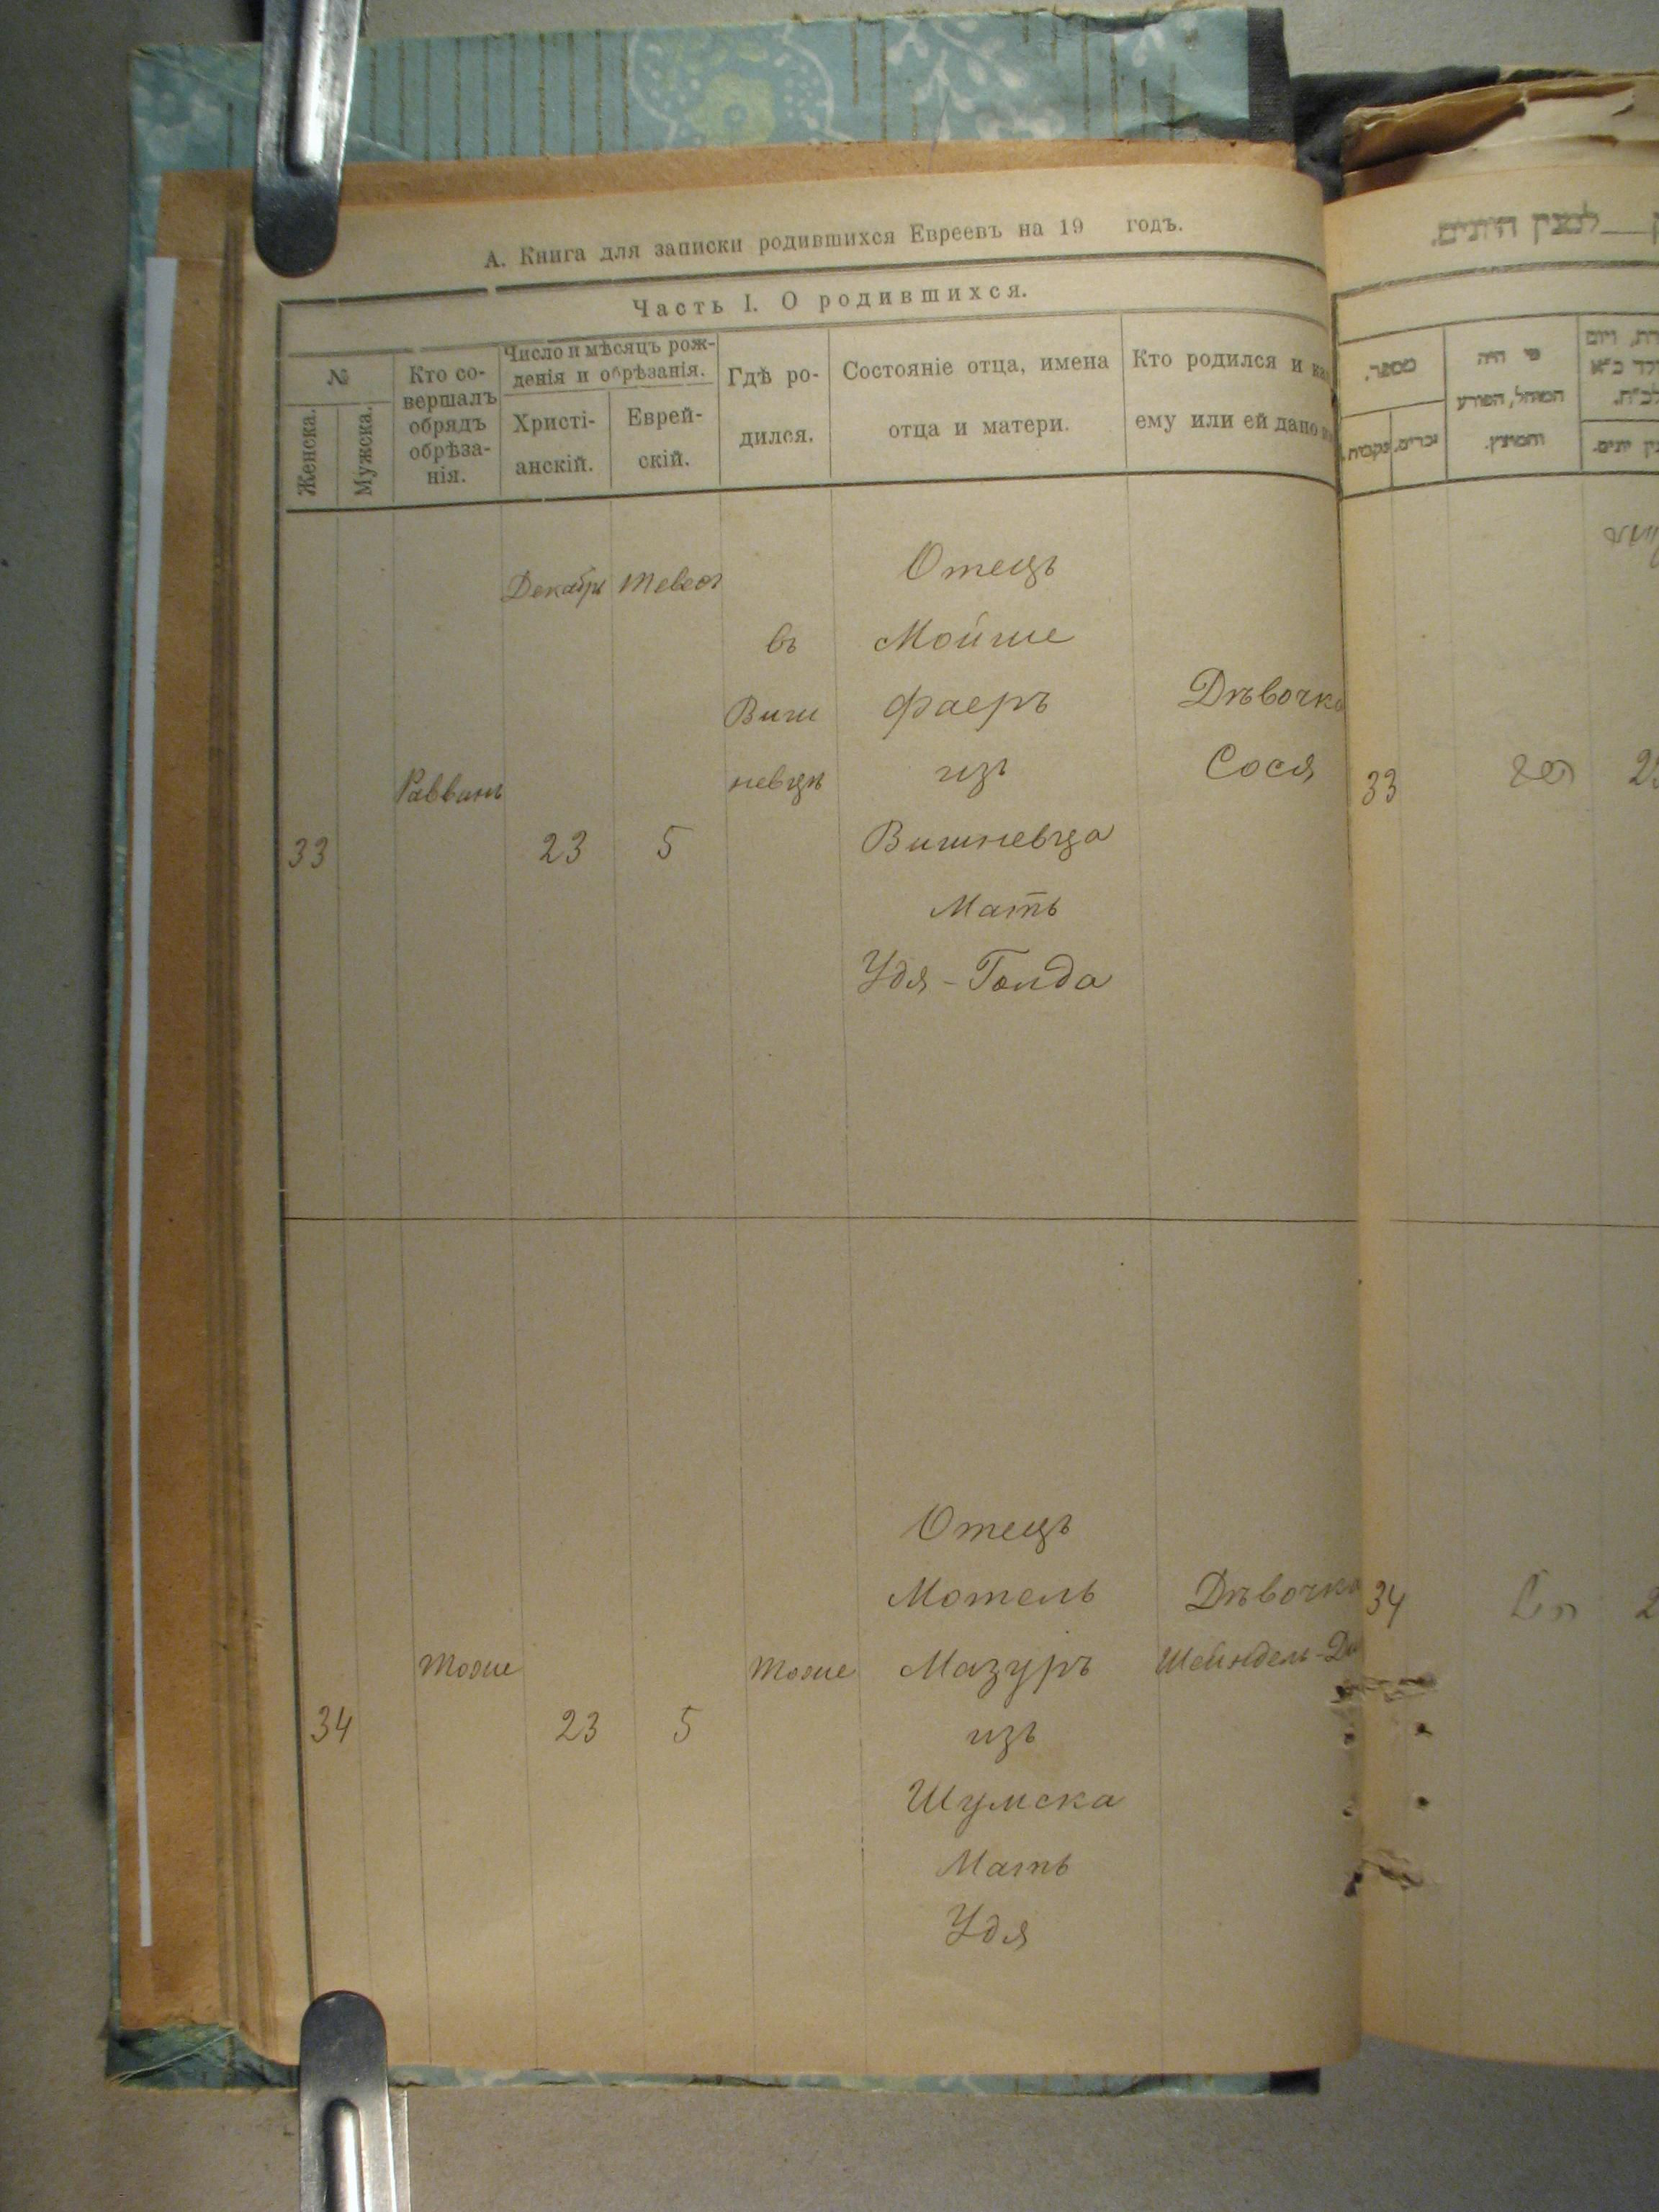 А. Книга для записки родившихся Евреевъ на 19 годъ.
Часть I. О родившихся.
№
Женска.
Мужска.
Кто со-
вершалъ
обрядъ
обрѣза-
нія.
Число и мѣсяцъ рож-
денія и обрѣзанія.
Христі-
анскій.
Еврей-
скій.
Гдѣ ро-
дился.
Состояніе отца, имена
отца и матери.
Кто родился и
ему или ей дано
33
Раввинъ
Декабрь
23
Тевесъ
5
въ
Виш
невцѣ
Отецъ
Мойше
Фаеръ
изъ
Вишневца
Мать
Удя-Голда
Дѣвочка
Сося
34
тоже
23
5
тоже
Отецъ
Мотель
Мазуръ
изъ
Шумска
Мать
Удя
Дѣвочка
Шейндель-
מספר.
נקבות.
זכרים.
מי היה
המוהל, הפורע
והמוצץ.
33
34